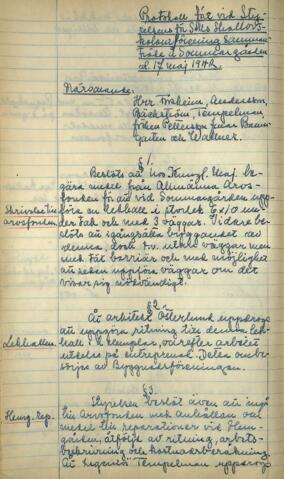 Protokoll fört vid Sty-
relsens för
sammanträde å Sommargården
d. 17 maj 1942.
Närvarande:
Herr Andersson,
Bäckström, Tempelman
fröken Pettersson fruar Baum-
garten och Wallner.
§ 1.
Beslöts att hos Kungl. Maj. be-
gära medel från Allmänna Arvs-
fonden för att vid Sommargården uppf-
öra en lekhall i storlek 8x10 m un-
der tak och med 3 väggar. Vidare be-
slöts att igångsätta byggandet av
denna, dock f.v. utan väggar men
med tät barriär och med möjlighet
att sedan uppföra väggar om det
visar sig nödvändigt.
Skrivelse till
arvsfonden.
§ 2.
Åt arkitekt Österlund uppdrogs
att uppgöra ritning till denna lek-
hall i 2 exemplar, varefter arbetet
utbjudes på entreprenad. Detta ombe-
sörjes av Byggnadsföreningen.
Lekhallen.
§ 3.
Styrelsen beslöt även att ingå
till Arvsfonden med anhållan om
medel till reparationer vid Hem-
gården, åtföljd av ritning, arbets-
beskrivning och kostnadsberäkning.
Åt Tempelman uppdrogs
Hemg. rep.